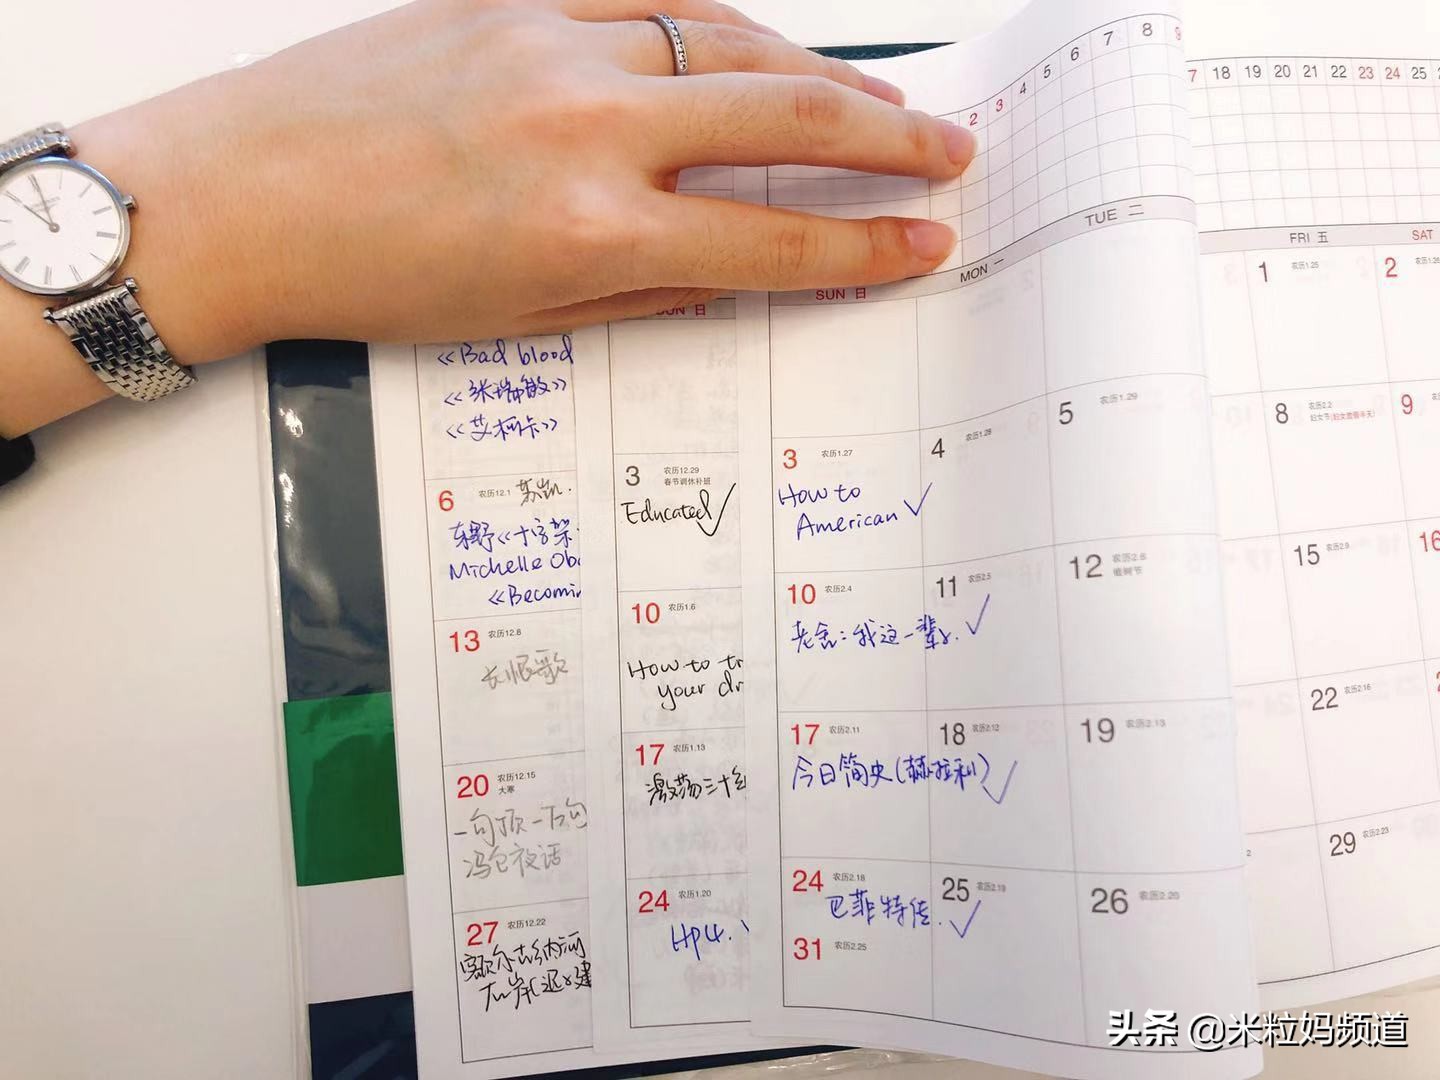 <<Bad blood
<<米瑞敏>>
<<艾柯卡>>
6 农历12.1
东野<<十字架
Michelle Oba
<<Becomin
13 农历12.8
长恨歌
20 农历12.15
大寒
一句顶一万句
冯仑夜话
27 农历12.22
额尔古纳河
右岸(迟子建
SUN 日
3 农历12.29
春节调休补班
Educated ✓
10 农历1.6
How to tr
your dr
17 农历1.13
激荡三十年
24 农历1.20
HP4.
2 3 4 5 6 7 8 9
SUN 日 MON 一 TUE 二
3 农历1.27 4 农历1.28 5 农历1.29
How to
American ✓
10 农历2.4 11 农历2.5 12 农历2.6
植树节
老舍:我这一辈子. ✓
17 农历2.11 18 农历2.12 19 农历2.13
今日简史(赫拉利) ✓
24 农历2.18 25 农历2.19 26 农历2.20
巴菲特传. ✓
31 农历2.25
7 18 19 20 21 22 23 24 25
FRI 五 SAT
1 农历1.25 2 农历1.26
8 农历2.2 9
妇女节(妇女放假半天)
15 农历2.9 16
22 农历2.16
29 农历2.23
头条 @米粒妈频道